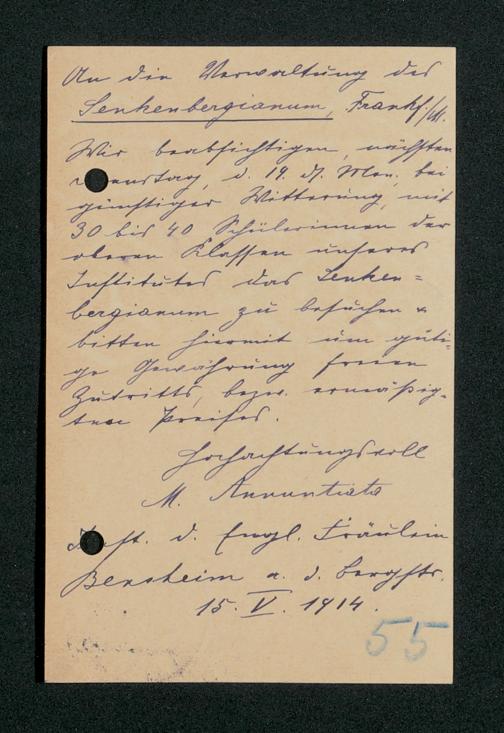 An die Verwaltung des
Senkenbergianum, Frankf./M.
Wir beabsichtigen, nächsten
Dienstag, d. 19. ds. Mon. bei
günstiger Witterung, mit
30 bis 40 Schülerinnen der
oberen Klassen unseres
Institutes das Senken=
bergianum zu besuchen &
bitten hiermit um güti-
ge Gewährung freien
Zutritts, bezw. ermäßig-
ten Preises.
Hochachtungsvoll
M. Annuntiata
Inst. d. Engl. Fräulein
Bensheim a. d. Bergstr.
15. V. 1914.
55